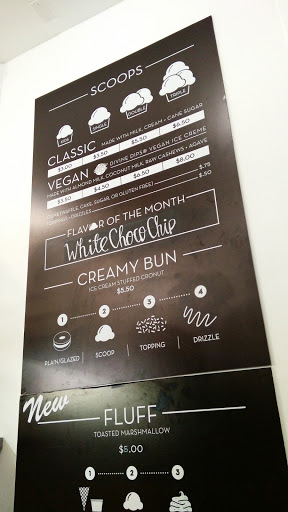 SCOOPS
KIDS SINGLE DOUBLE TRIPLE
CLASSIC MADE WITH MILK, CREAM + CANE SUGAR
$3.00 $3.50 $5.50 $6.50
VEGAN DIVINE DIPS® VEGAN ICE CREME
MADE WITH ALMOND MILK, COCONUT MILK, RAW CASHEWS + AGAVE
$3.50 $4.50 $6.50 $8.00
CONE (WAFFLE, CAKE, SUGAR, OR GLUTEN FREE) $.75
TOPPINGS + DRIZZLES $.50
FLAVOR OF THE MONTH
White Choco Chip
CREAMY BUN
ICE CREAM STUFFED CRONUT
$5.50
1 2 3 4
PLAIN/GLAZED SCOOP TOPPING DRIZZLE
New
FLUFF
TOASTED MARSHMALLOW
$5.00
1 2 3